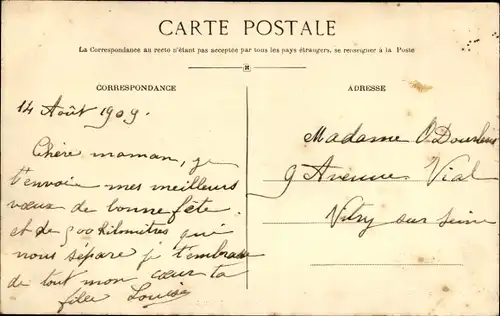 CARTE POSTALE
La Correspondance au recto n'étant pas acceptée par tous les pays étrangers, se renseigner à la Poste
CORRESPONDANCE
14 Août 1909.
Chère maman, je
t'envoie mes meilleurs
vœux de bonne fête
et de 500 kilomètres qui
nous sépare je t'embrasse
de tout mon cœur ta
fille Louise
ADRESSE
Madame
9 Avenue Vial
Vitry sur Seine